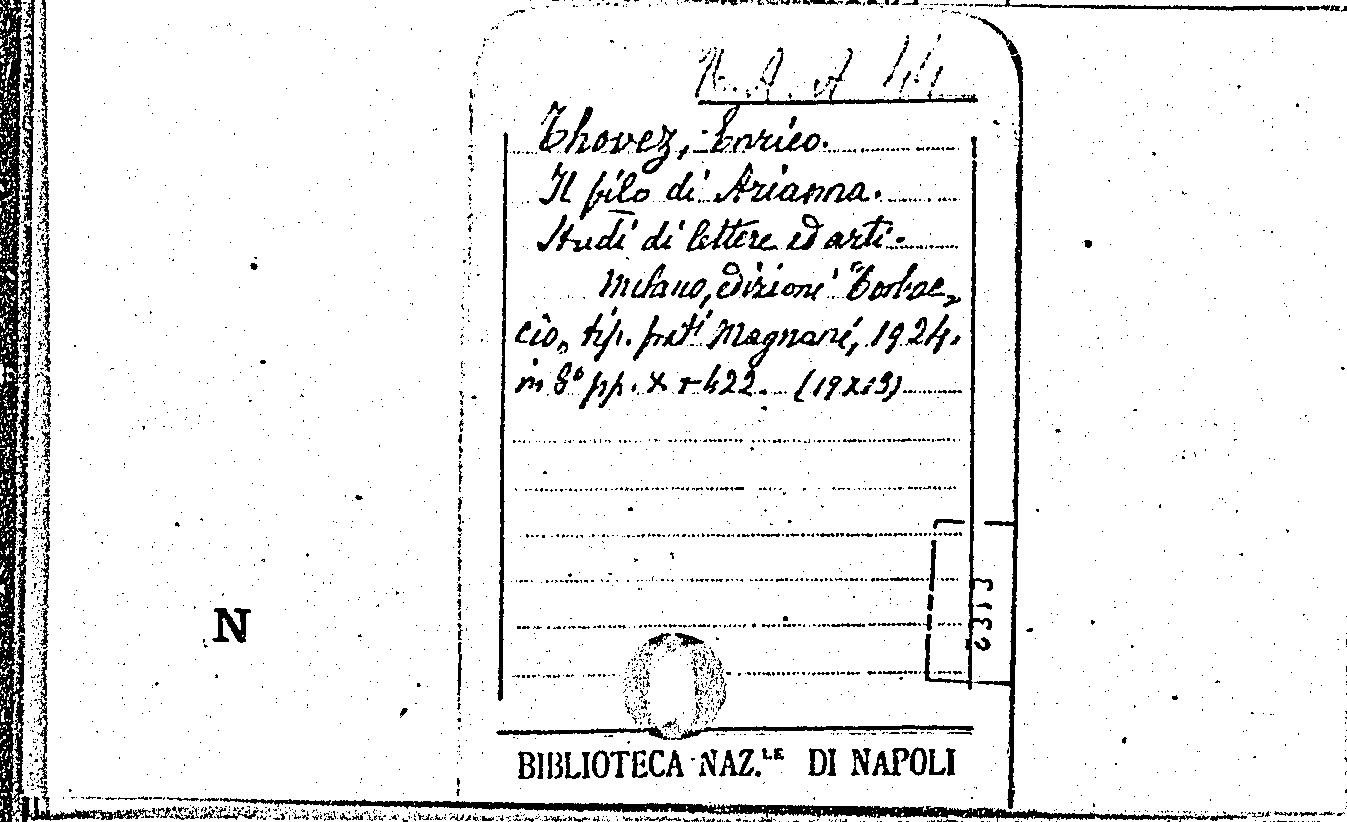 N. A. A 44
Thovez, Enrico.
Il filo di Arianna.
Studi di lettere ed arti.
Milano, edizioni "Corbac,
cio„ tip. frati Magnani, 1924.
in 8° pp. X + 422. (19x13)
6313
N
BIBLIOTECA NAZ.LE DI NAPOLI